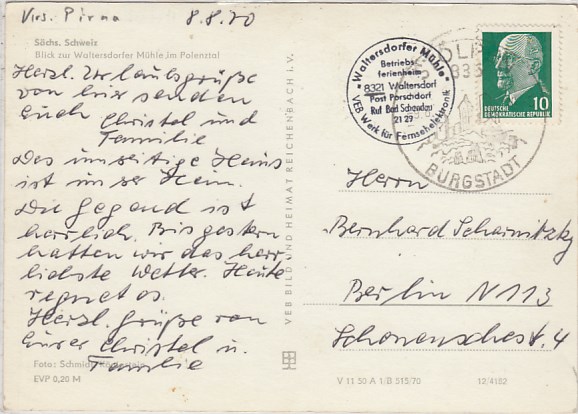 Krs. Pirna 8.8.70
Sächs. Schweiz
Blick zur Waltersdorfer Mühle im Polenztal
Herzl. Urlaubsgrüße
von hier senden
Euch Christel und
Familie
Das umseitige Haus
ist unser Heim.
Die Gegend ist
herrlich. Bis gestern
hatten wir das herr
lichste Wetter. Heute
regnet es.
Herzl. Grüße von
Eurer Christel u.
Familie
Foto: Schmidt
EVP 0,20 M
VEB BILD UND HEIMAT REICHENBACH I.V.
"Waltersdorfer Mühle"
Betriebs
ferienheim
8321 Waltersdorf
Post Porschdorf
Ruf Bad Schandau
21 27
VEB Werk für Fernsehelektronik
BURGSTADT
10
DEUTSCHE
DEMOKRATISCHE REPUBLIK
Herrn
Bernhard Scharnitzky
Berlin N 113
Schonensches. 4
V 11 50 A 1/B 515/70 12/4182